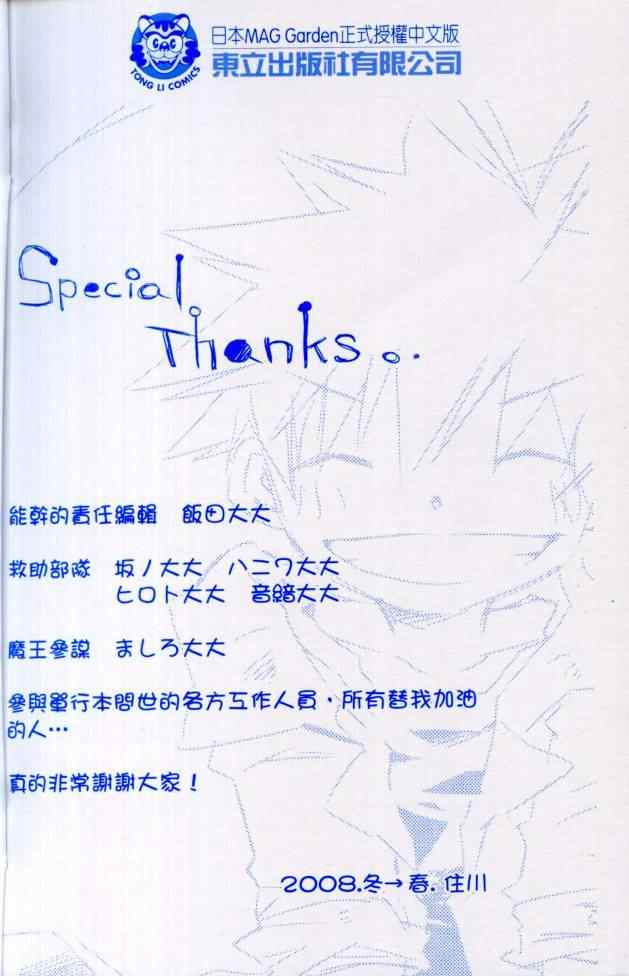 日本MAG Garden正式授權中文版
東立出版社有限公司
TONG LI COMICS
Special
Thanks...
能幹的責任編輯　飯田大大
救助部隊　坂ノ大大　ハニワ大大
ヒロト大大　音緒大大
魔王參謀　ましろ大大
參與單行本問世的各方工作人員，所有替我加油
的人…
真的非常謝謝大家！
2008.冬→春. 住川